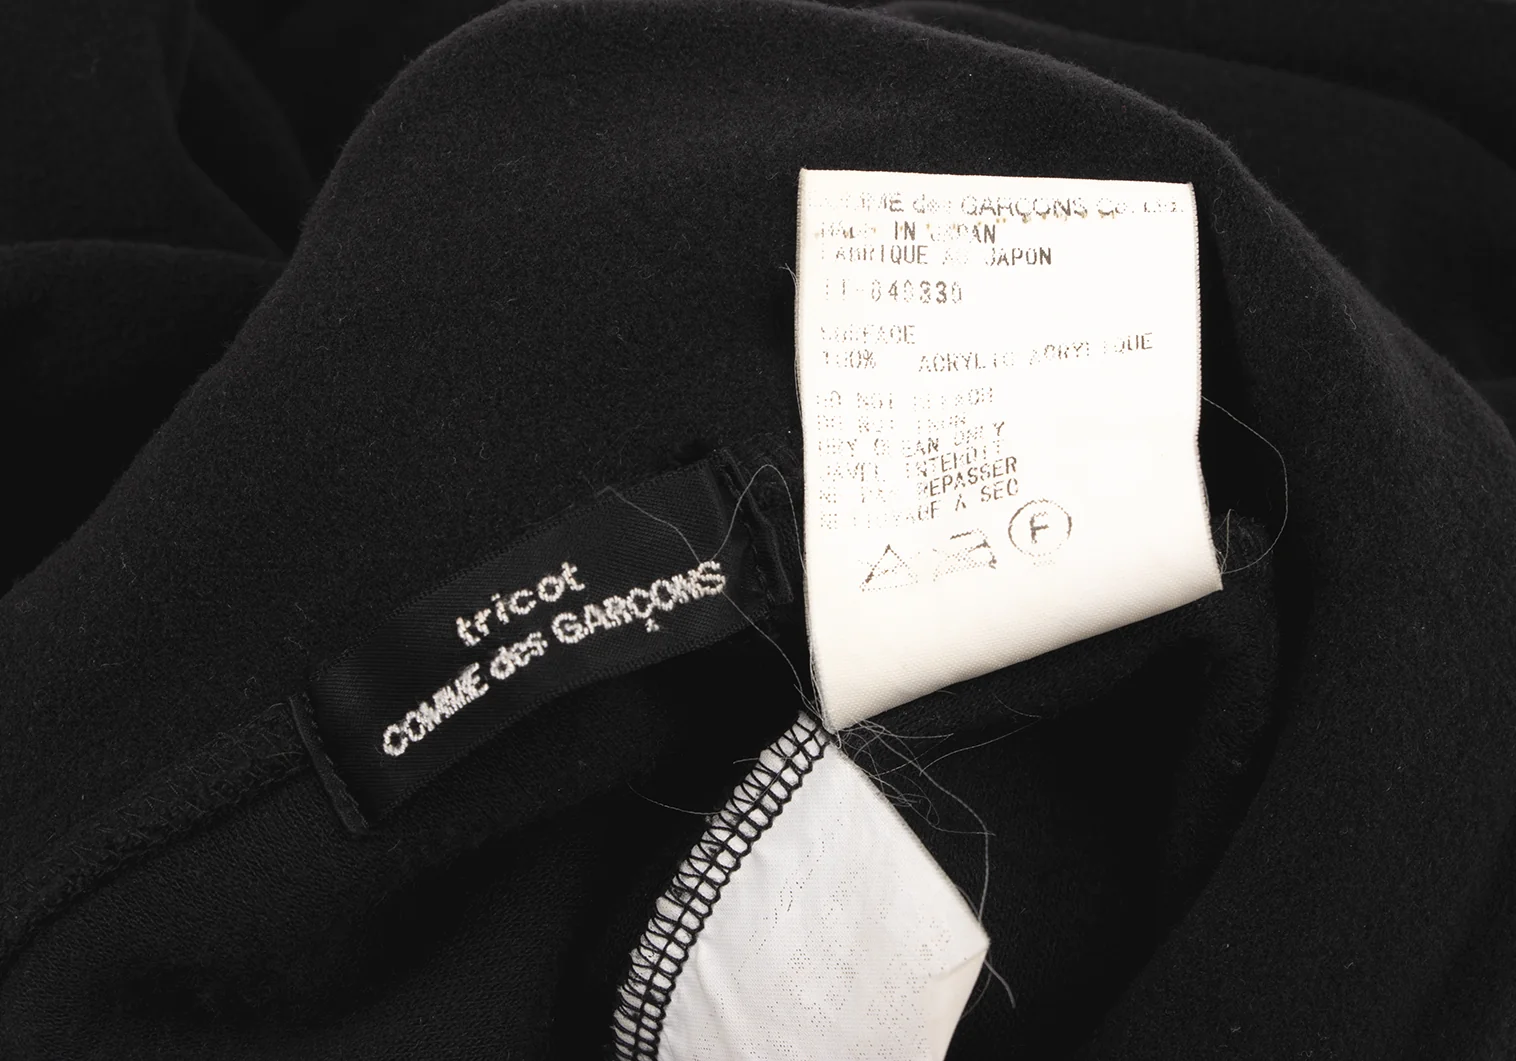 tricot
COMME des GARÇONS
COMME des GARÇONS Co. Ltd.
MADE IN JAPAN
FABRIQUE AU JAPON
SURFACE
100% ACRYLIC ACRYLIQUE
DO NOT BLEACH
DO NOT IRON
DRY CLEAN ONLY
JAVEL INTERDIT
NE PAS REPASSER
NETTOYAGE A SEC
F